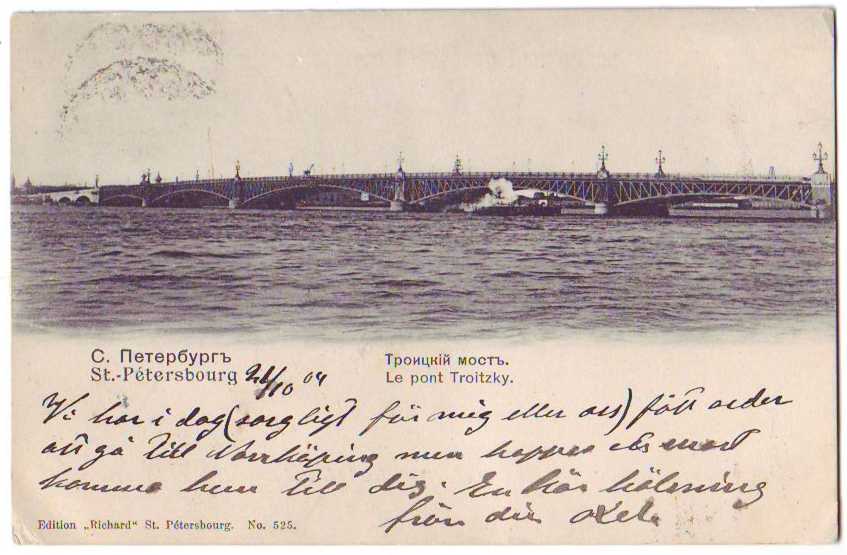 С. Петербургъ
St.-Pétersbourg 21/10 04
Троицкій мостъ.
Le pont Troitzky.
Vi har i dag (sorgligt för mig eller oss) fått order
att gå till Norrköping men hoppas snart
komma hem till dig. En kär hälsning
från din Axel.
Edition „Richard“ St. Pétersbourg. No. 525.